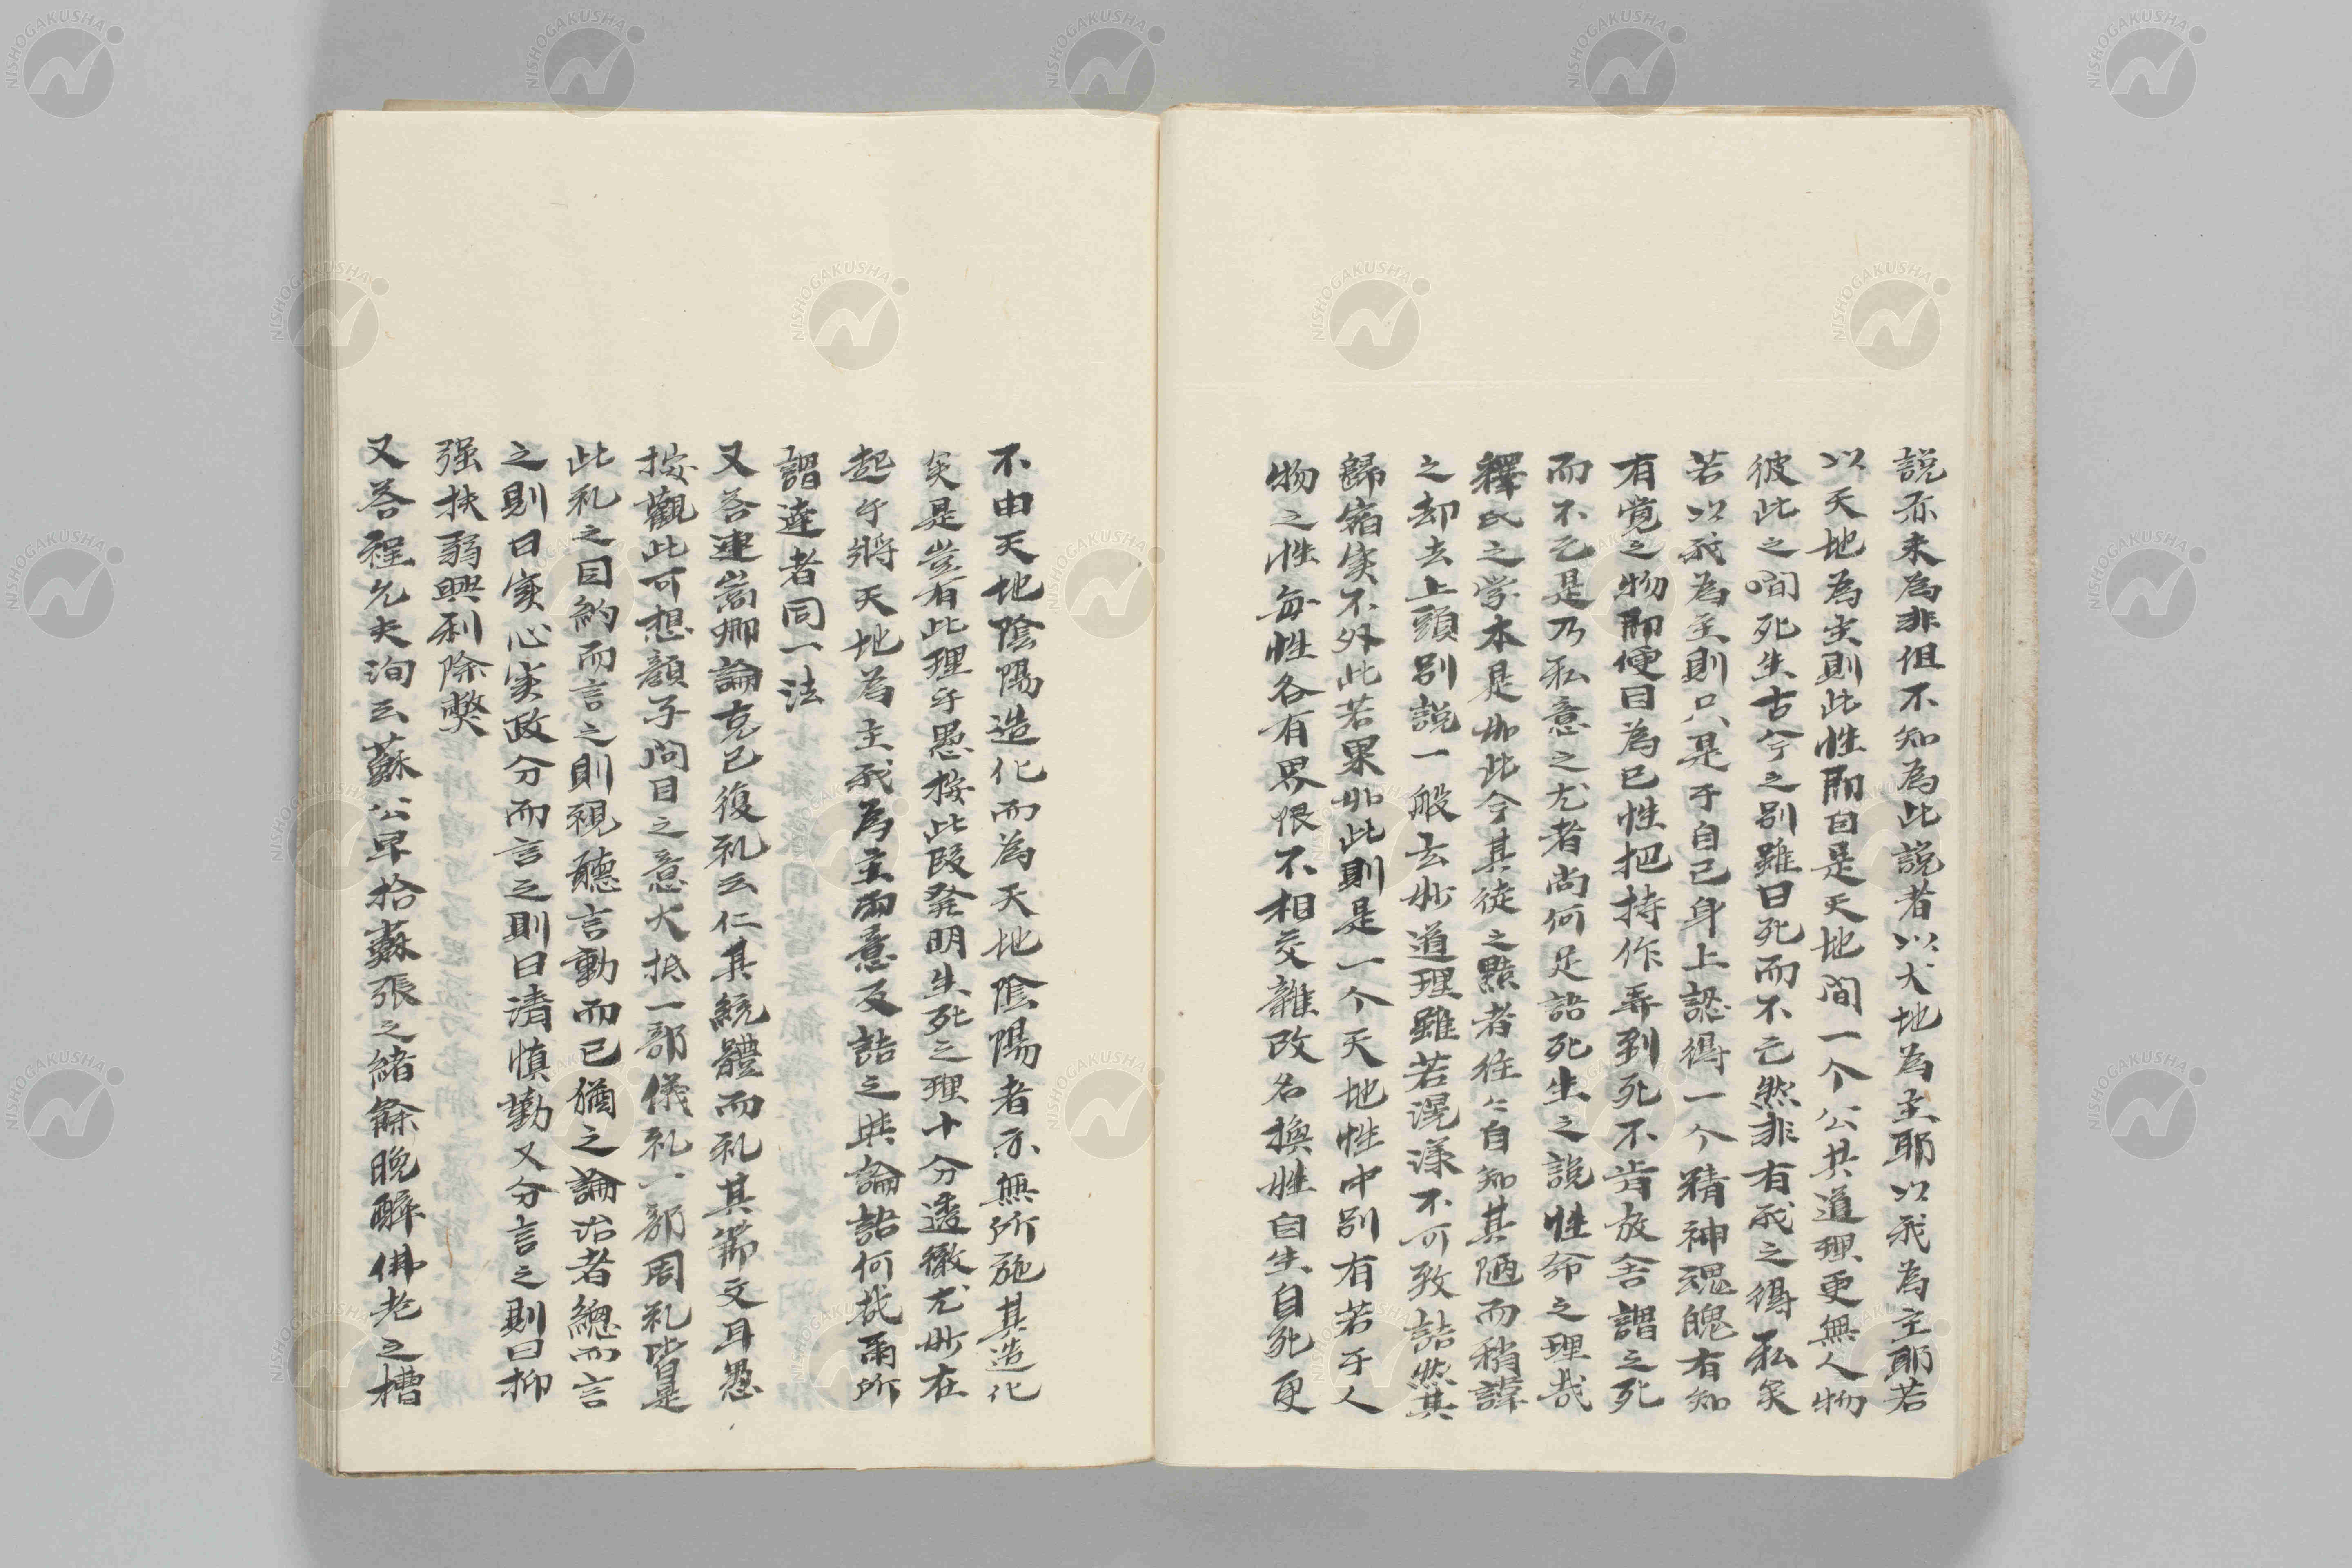 説亦未為非但不知為此説者以天地為主耶以我為主耶若
以天地為主則此性即自是天地間一个公共道理更無人物
彼此之間死生古今之別雖曰死而不亡然非有我之得私矣
若以我為主則只是于自己身上認得一个精神魂魄有知
有覚之物即便目為己性把持作弄到死不肯放舎謂之死
而不亡是乃私意之尤者尚何足語死生之説性命之理哉
釋氏之学本是如此今其徒之黠者往々自知其陋而稍諱
之却去上頭別説一般玄妙道理雖若滉漾不可致詰然其
歸宿実不外此若果如此則是一个天地性中別有若干人
物之性毎性各有界限不相交雜改名換姓自生自死更
不由天地陰陽造化而為天地陰陽者亦無所施其造化
矣是豈有此理乎愚按此段発明生死之理十分透徹尤妙在
起乎將天地為主我為主両意反詰之與論語何哉爾所
謂達者同一法
又答連嵩卿論克己復礼云仁其統體而礼其節文耳愚
按觀此可想顔子問目之意大抵一部儀礼一部周礼皆是
此礼之目約而言之則視聽言動而已猶之論治者總而言
之則曰実心実政分而言之則曰清慎勤又分言之則曰抑
强扶弱興利除弊
又答程允夫洵云蘇公早拾蘇張之緒餘晩醉佛老之糟